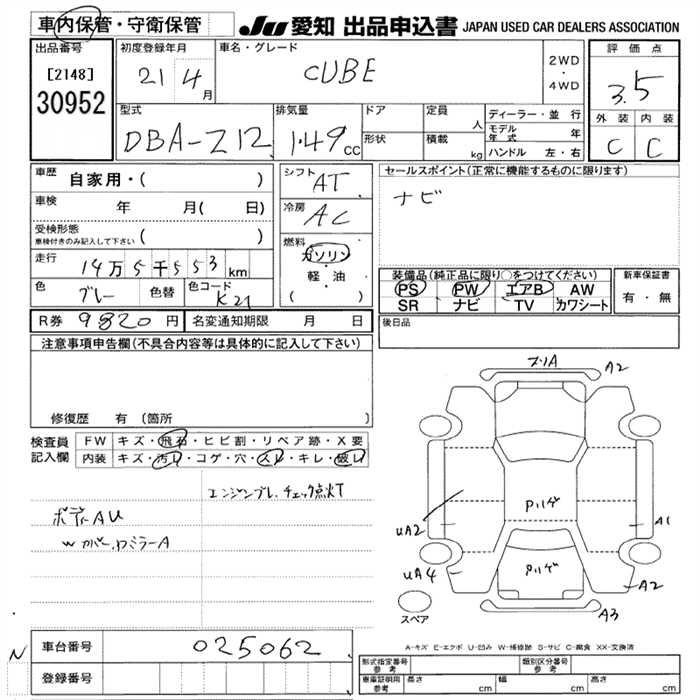 車内保管・守衛保管 JU 愛知 出品申込書 JAPAN USED CAR DEALERS ASSOCIATION
出品番号 初度登録年月 車名・グレード 評価点
[2148] 21 4月 CUBE 2WD・4WD 3.5
30952 外装 内装
型式 排気量 ドア 定員 人 ディーラー・並行 C C
DBA-Z12 1.49cc 形状 積載 kg モデル年式 年
ハンドル 左・右
車歴 自家用・( ) シフト AT セールスポイント(正常に機能するものに限ります)
車検 年 月( 日) 冷房 AC ナビ
受検形態 ( )
車検付きのみ記入して下さい
走行 14万5千553km 燃料 ガソリン
軽・油
( )
色 ブルー 色替 色コード K21
装備品(純正品に限り○をつけてください) 新車保証書
PS PW エアB AW 有・無
SR ナビ TV カワシート
R券 9820円 名変通知期限 月 日 後日品
注意事項申告欄(不具合内容等は具体的に記入して下さい)
修復歴 有 (箇所
検査員記入欄 FW キズ・飛石・ヒビ割・リペア跡・X要
内装 キズ・汚レ・コゲ・穴・スレ・キレ・破レ
チェック点灯
ボディAU
Wカバー、ワミラーA
A2
Pハゲ
UA2 A1
Pハゲ
UA4 A2
A3
スペア
A-キズ E-エクボ U-凹み W-補修跡 S-サビ C-腐食 XX-交換済
N 車台番号 025062
登録番号
型式指定番号 参考 類別区分番号 参考
車庫証明用 参考 長さ cm 幅 cm 高さ cm